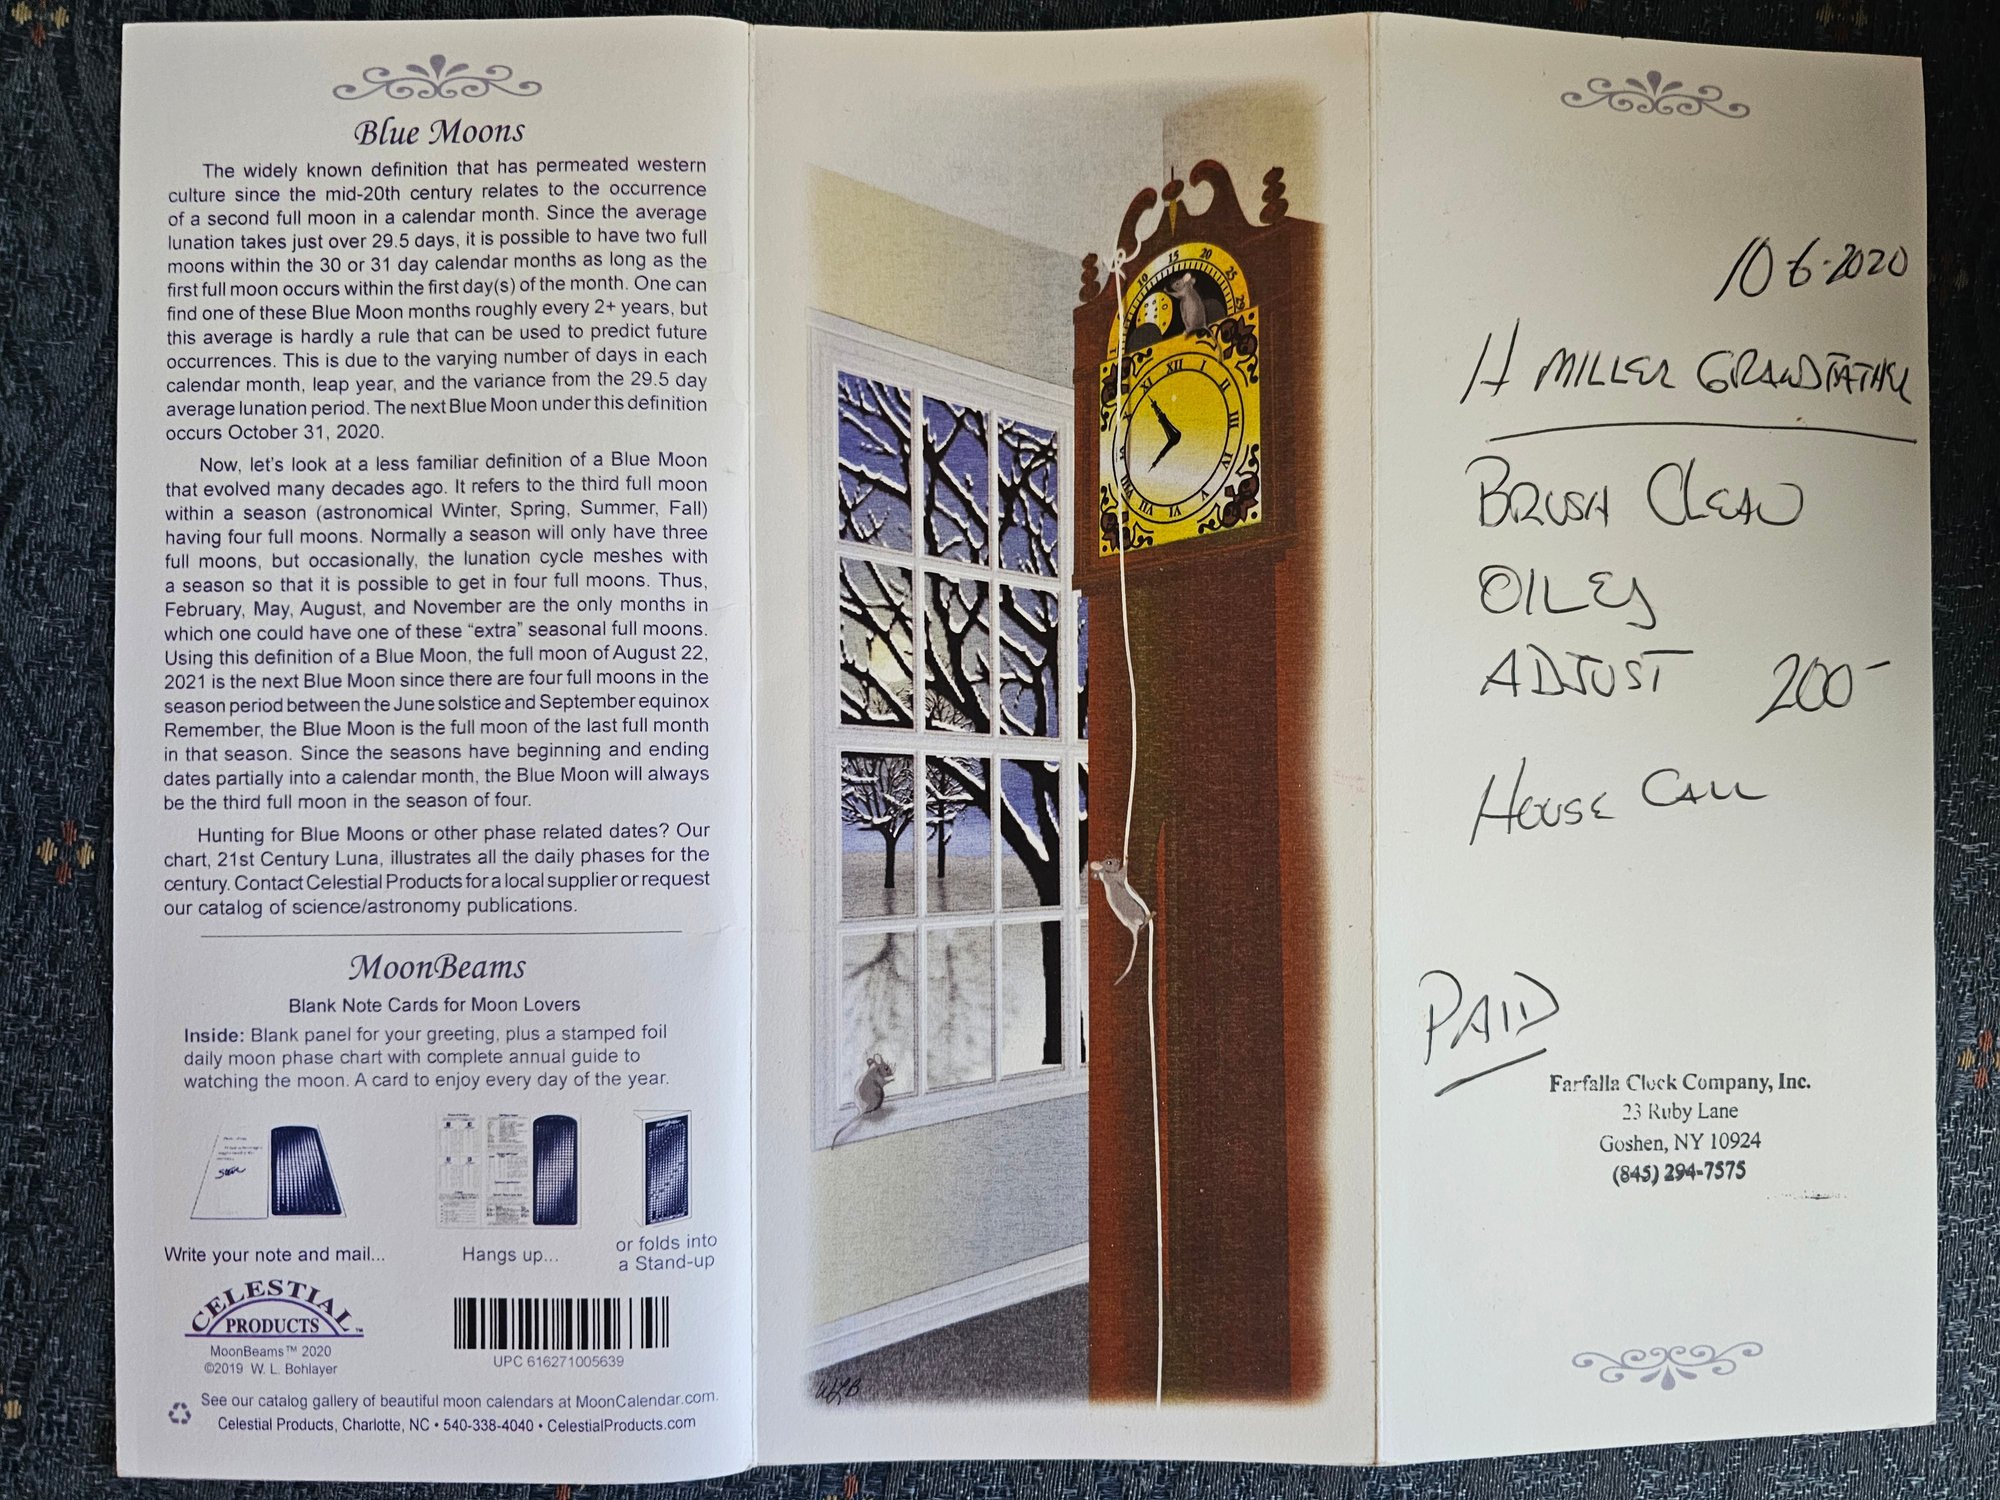 Blue Moons
The widely known definition that has permeated western
culture since the mid-20th century relates to the occurrence
of a second full moon in a calendar month. Since the average
lunation takes just over 29.5 days, it is possible to have two full
moons within the 30 or 31 day calendar months as long as the
first full moon occurs within the first day(s) of the month. One can
find one of these Blue Moon months roughly every 2+ years, but
this average is hardly a rule that can be used to predict future
occurrences. This is due to the varying number of days in each
calendar month, leap year, and the variance from the 29.5 day
average lunation period. The next Blue Moon under this definition
occurs October 31, 2020.
Now, let's look at a less familiar definition of a Blue Moon
that evolved many decades ago. It refers to the third full moon
within a season (astronomical Winter, Spring, Summer, Fall)
having four full moons. Normally a season will only have three
full moons, but occasionally, the lunation cycle meshes with
a season so that it is possible to get in four full moons. Thus,
February, May, August, and November are the only months in
which one could have one of these "extra" seasonal full moons.
Using this definition of a Blue Moon, the full moon of August 22,
2021 is the next Blue Moon since there are four full moons in the
season period between the June solstice and September equinox
Remember, the Blue Moon is the full moon of the last full month
in that season. Since the seasons have beginning and ending
dates partially into a calendar month, the Blue Moon will always
be the third full moon in the season of four.
Hunting for Blue Moons or other phase related dates? Our
chart, 21st Century Luna, illustrates all the daily phases for the
century. Contact Celestial Products for a local supplier or request
our catalog of science/astronomy publications.
MoonBeams
Blank Note Cards for Moon Lovers
Inside: Blank panel for your greeting, plus a stamped foil
daily moon phase chart with complete annual guide to
watching the moon. A card to enjoy every day of the year.
Write your note and mail...
Hangs up...
or folds into
a Stand-up
CELESTIAL
PRODUCTS ™
MoonBeams™ 2020
©2019 W. L. Bohlayer
UPC 616271005639
See our catalog gallery of beautiful moon calendars at MoonCalendar.com.
Celestial Products, Charlotte, NC • 540-338-4040 • CelestialProducts.com
10 15 20 25
XII I II III IV V VI VII VIII X XI
WLB
10-6-2020
H MILLER GRANDFATHER
BRUSH CLEAN
OILEJ
ADJUST 200-
HOUSE CALL
PAID
Farfalla Clock Company, Inc.
23 Ruby Lane
Goshen, NY 10924
(845) 294-7575